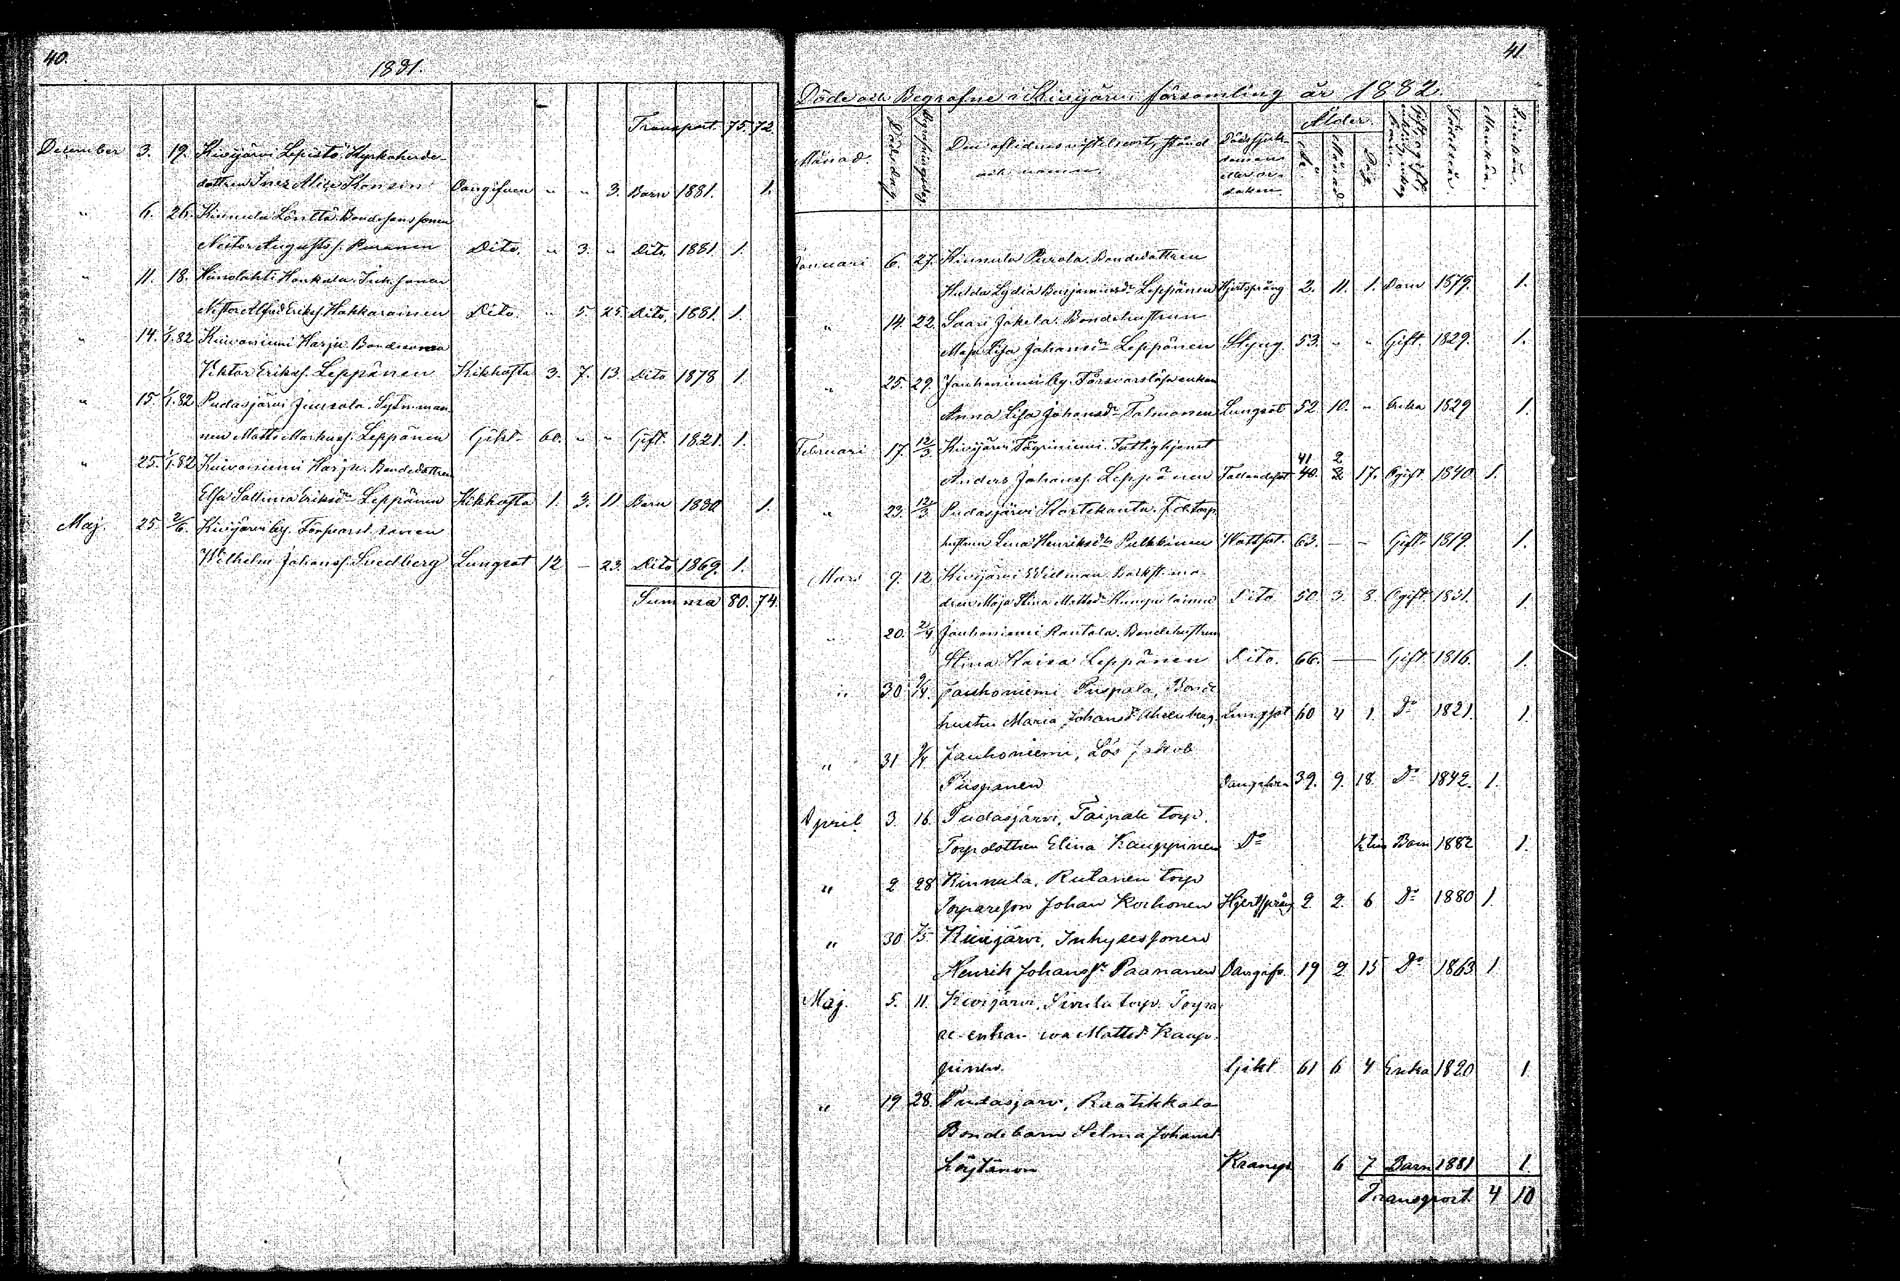 40.
1881.
Transport. 75. 72.
December 3. 19. Kivijärvi Lepistö. Kyrkoherde-
dottren Inez Alice Konsin Oangifven " " 3. Barn 1881. 1.
" 6. 26. Kinnula Löntto. Bondesons sonen
Nestor Augusts s. Puranen Dito. " 3. " Dito. 1881. 1.
" 11. 18. Hankala. Inh. sonen
Nestor Alfred Eriks s. Hakkarainen Dito. " 5. 25. Dito. 1881. 1.
" 14. 1/1.82 Kuivaniemi Harju. Bondesonen
Viktor Eriks s. Leppänen Kikhosta 3. 7. 13. Dito 1878 1.
" 15. 1/1.82 Pudasjärvi Jussola. Sytn.man-
nen Matts Markus s. Leppänen Gikt. 60. " " Gift. 1821. 1.
" 25. 1/1.82 Kuivaniemi Harju. Bondedottren
Elsa Sallima Eriksdr Leppänen Kikhosta 1. 3. 11 Barn 1880 1.
Maj. 25. 2/6. Kivijärvi by. Förswarsl. sonen
Wilhelm Johans s. Svedberg Lungsot 12 – 23. Dito 1869. 1.
Summa 80. 74.
41
Döde och Begrafne i Kivijärvi församling år 1882.
Månad. Dödsdag. Begrafningsdag. Den aflidnes vistelseort, stånd
och namn. Dödssjuk-
domen
eller or-
saken. Ålder. År. Månad. Dag. Födelseår. Mankön. Qvinkön.
Januari 6. 27. Kinnula Purola. Bondedottren
Hulda Lydia Benjaminsdr Leppänen Hjertsprång 2. 11. 1. Barn 1879. 1.
" 14. 22. Saari Jokela. Bondehustrun
Maja Lisa Johansdr Leppänen Styng. 53. " " Gift 1829. 1.
" 25. 29. Jauhoniemi by. Försvarslös enkan
Anna Lisa Johansdr Talmanen Lungsot 52. 10. " Enka 1829 1.
Februari 17. 12/3. Kivijärvi Fattighjonet
Anders Johans s. Leppänen Fallandesot 41 40. 2 2 17. Ogift 1840. 1.
" 23. 12/3 Pudasjärvi Kortekanta. F.d. torp.
hustrun Lena Henriksdr Pulkkinen Wattsot. 63. – – Gift. 1819. 1.
Mars 9. 12 Kivijärvi Wielman. Backst. mo-
dren Maja Stina Mattsdr Kumpulainen Dito 50. 3. 8. Ogift. 1831. 1.
" 20. 2/4 Jauhoniemi Rantala. Bondehustrun
Stina Kaisa Leppänen Dito. 66. – – Gift. 1816. 1.
" 30 9/4. Jauhoniemi Piispala, Bonde
hustru Maria Johansd. Ahlenberg. Lungsot 60 4 1. Do 1821. 1.
" 31 9/4 Jauhoniemi, Lös Jakob
Piispanen Oangifven 39. 9. 18. Do 1842. 1.
April 3. 16. Pudasjärvi, Taipale torp.
Torpdottren Elina Kauppinen Do Barn 1882 1.
" 2 28 Kinnula, Rutanen torp
Torpareson Johan Korhonen Hjertsprång 2. 2. 6 Do 1880 1
" 30 7/5. Kivijärvi, Inhyses sonen
Henrik Johans sr Paananen Oangifv. 19 2 15 Do 1863 1
Maj. 5. 11. Kivijärvi, Sirula torp. Torpa
re-enkan Eva Mattsd. Kaup-
pinen. Gikt 61 6 4 Enka 1820 1
" 19 28. Pudasjärvi, Raatikkala
Bondebarn Selma Johansd.
Löytänen Kramp. 6 7 Barn 1881 1.
Transport. 4 10